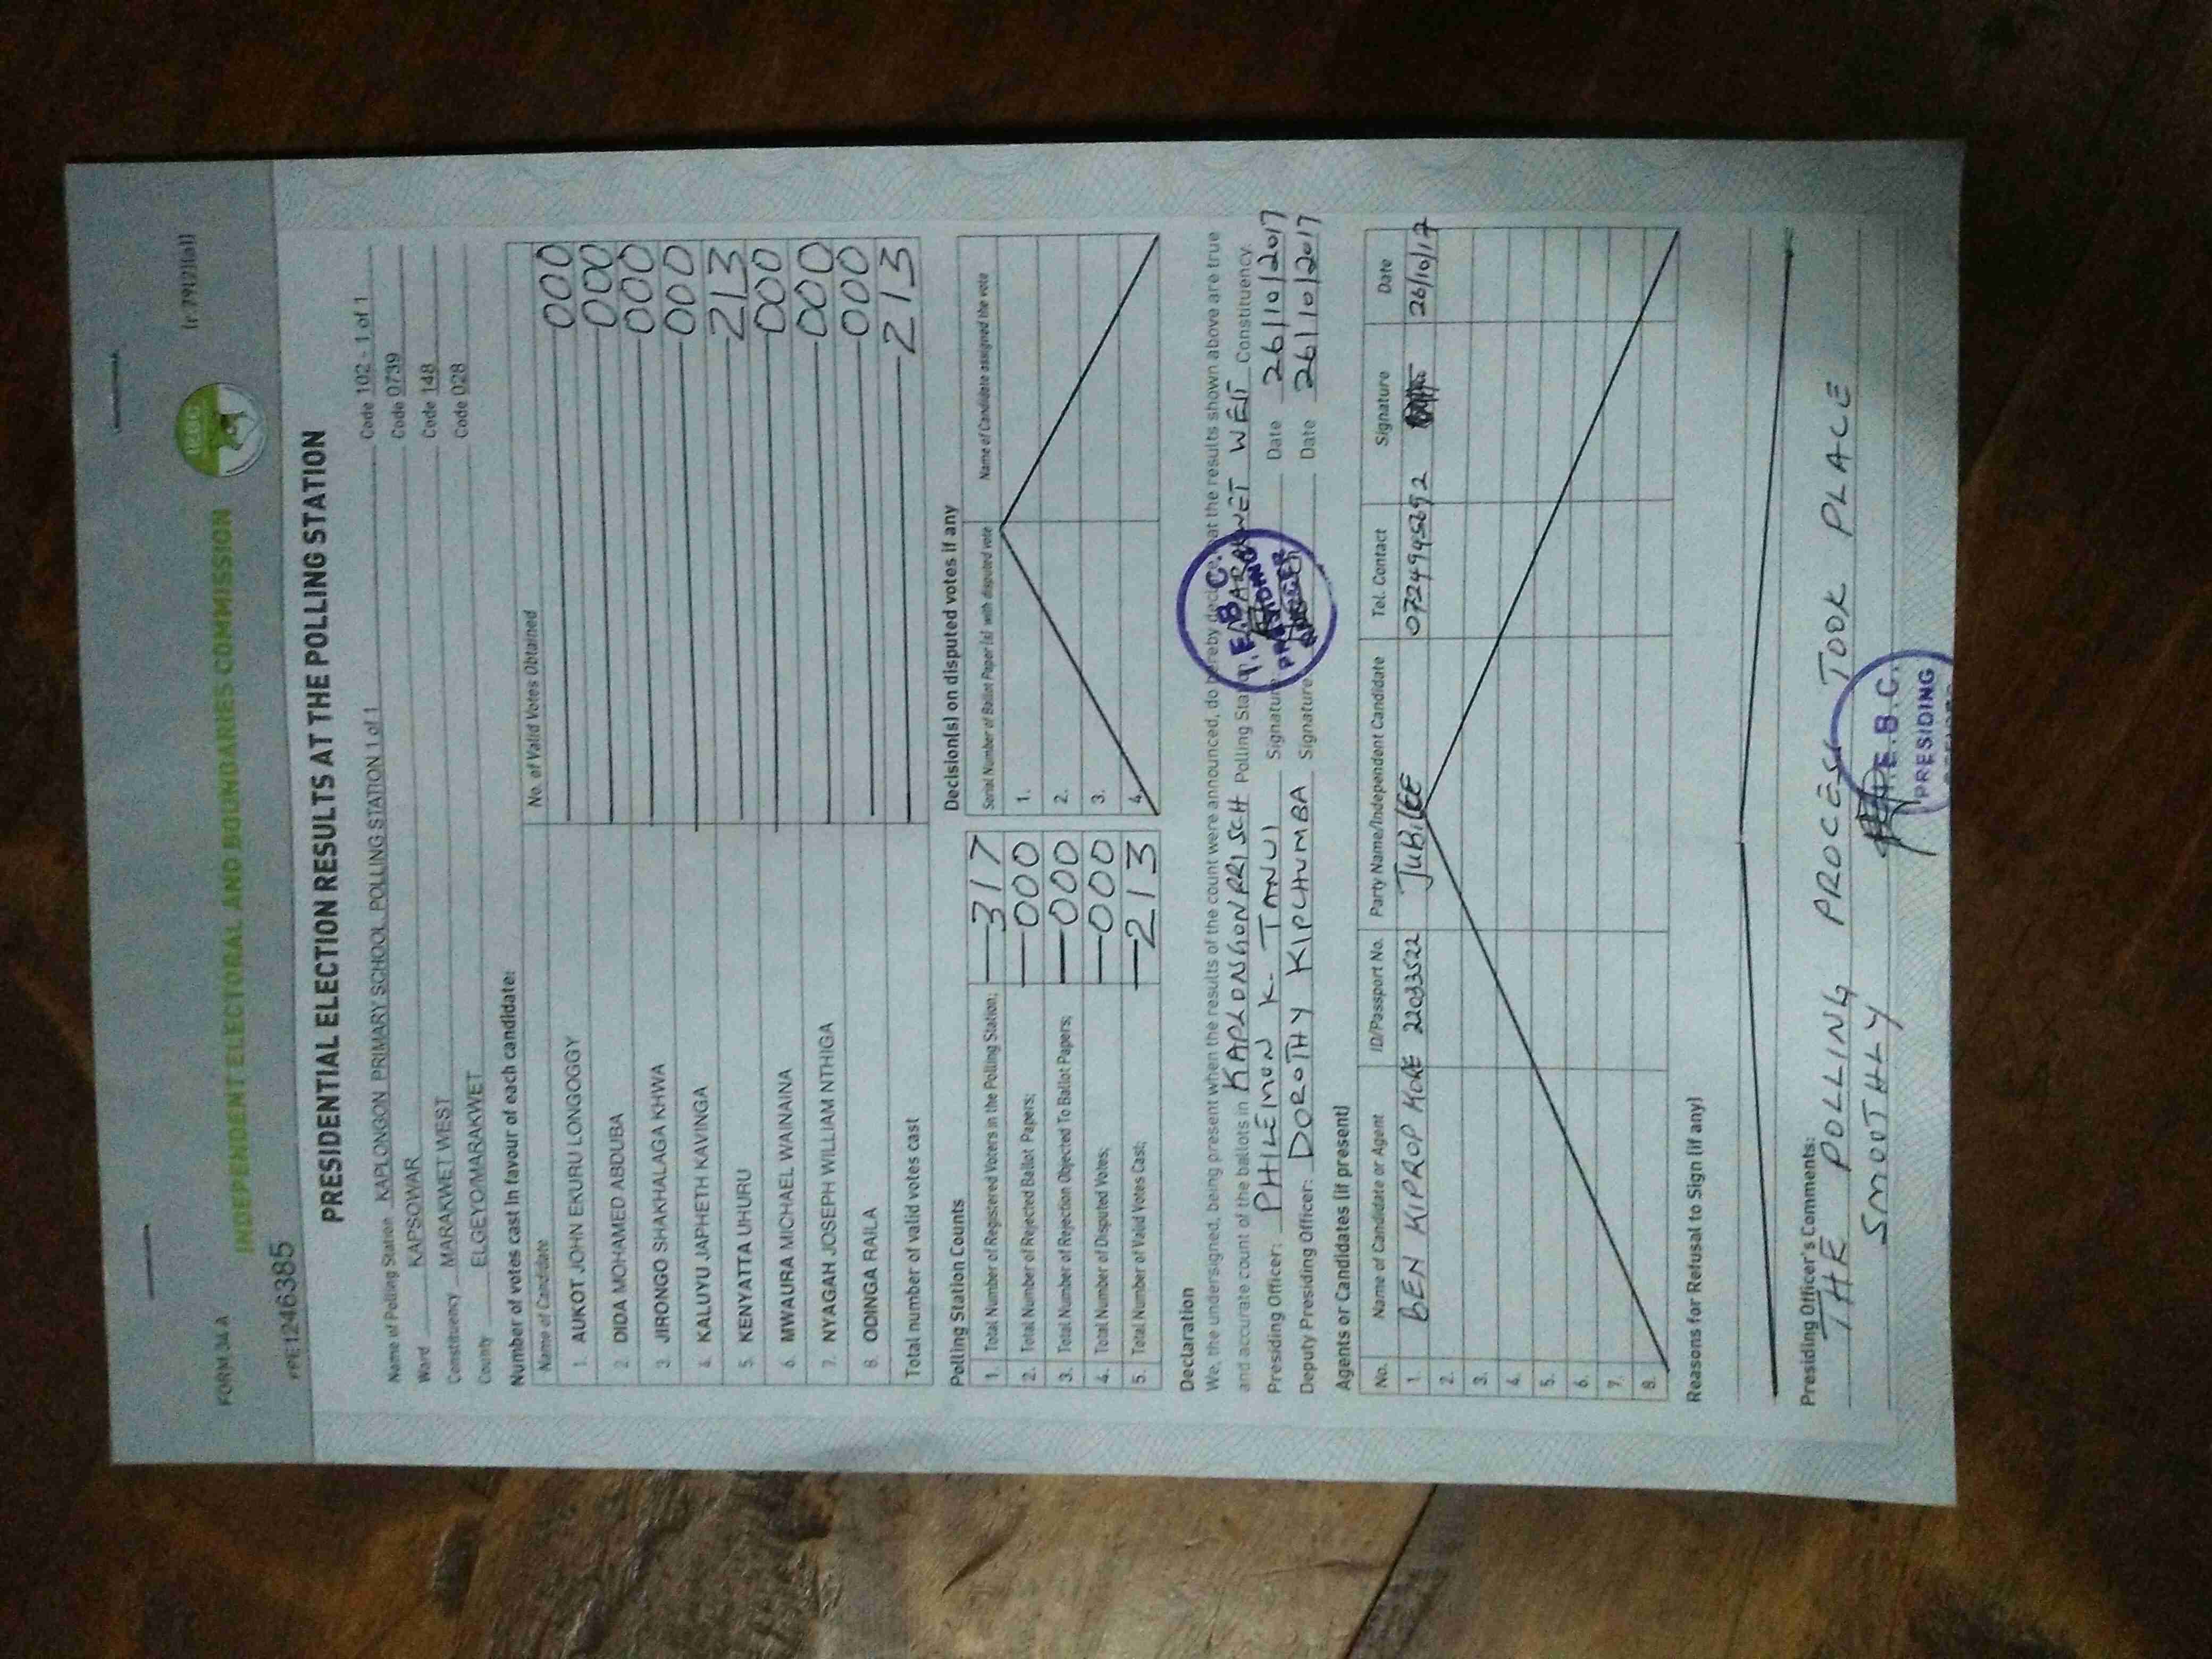 FORM 34 A
(r 79(2)(a))
INDEPENDENT ELECTORAL AND BOUNDARIES COMMISSION
IEBC
PRE1246385
PRESIDENTIAL ELECTION RESULTS AT THE POLLING STATION
Name of Polling Station KAPLONGON PRIMARY SCHOOL POLLING STATION 1 of 1 Code 102 - 1 of 1
Ward KAPSOWAR Code 0739
Constituency MARAKWET WEST Code 148
County ELGEYO/MARAKWET Code 028
Number of votes cast in favour of each candidate:
Name of Candidate No. of Valid Votes Obtained
1. AUKOT JOHN EKURU LONGOGGY 000
2. DIDA MOHAMED ABDUBA 000
3. JIRONGO SHAKHALAGA KHWA 000
4. KALUYU JAPHETH KAVINGA 000
5. KENYATTA UHURU 213
6. MWAURA MICHAEL WAINAINA 000
7. NYAGAH JOSEPH WILLIAM NTHIGA 000
8. ODINGA RAILA 000
Total number of valid votes cast 213
Polling Station Counts
1. Total Number of Registered Voters in the Polling Station; 317
2. Total Number of Rejected Ballot Papers; 000
3. Total Number of Rejection Objected To Ballot Papers; 000
4. Total Number of Disputed Votes; 000
5. Total Number of Valid Votes Cast; 213
Decision(s) on disputed votes if any
Serial Number of Ballot Paper (s) with disputed vote Name of Candidate assigned the vote
1.
2.
3.
4.
Declaration
We, the undersigned, being present when the results of the count were announced, do hereby declare that the results shown above are true
and accurate count of the ballots in KAPLONGON PRI SCH Polling Station, MARAKWET WEST Constituency.
Presiding Officer: PHILEMON K. TANUI Signature Date 26/10/2017
Deputy Presiding Officer: DOROTHY KIPCHUMBA Signature Date 26/10/2017
I.E.B.C.
PRESIDING
OFFICER
Agents or Candidates (if present)
No. Name of Candidate or Agent ID/Passport No. Party Name/Independent Candidate Tel. Contact Signature Date
1. BEN KIPROP KORE 22033522 JUBILEE 26/10/17
2.
3.
4.
5.
6.
7.
8.
Reasons for Refusal to Sign (if any)
Presiding Officer's Comments:
THE POLLING PROCESS TOOK PLACE
SMOOTHLY
I.E.B.C.
PRESIDING